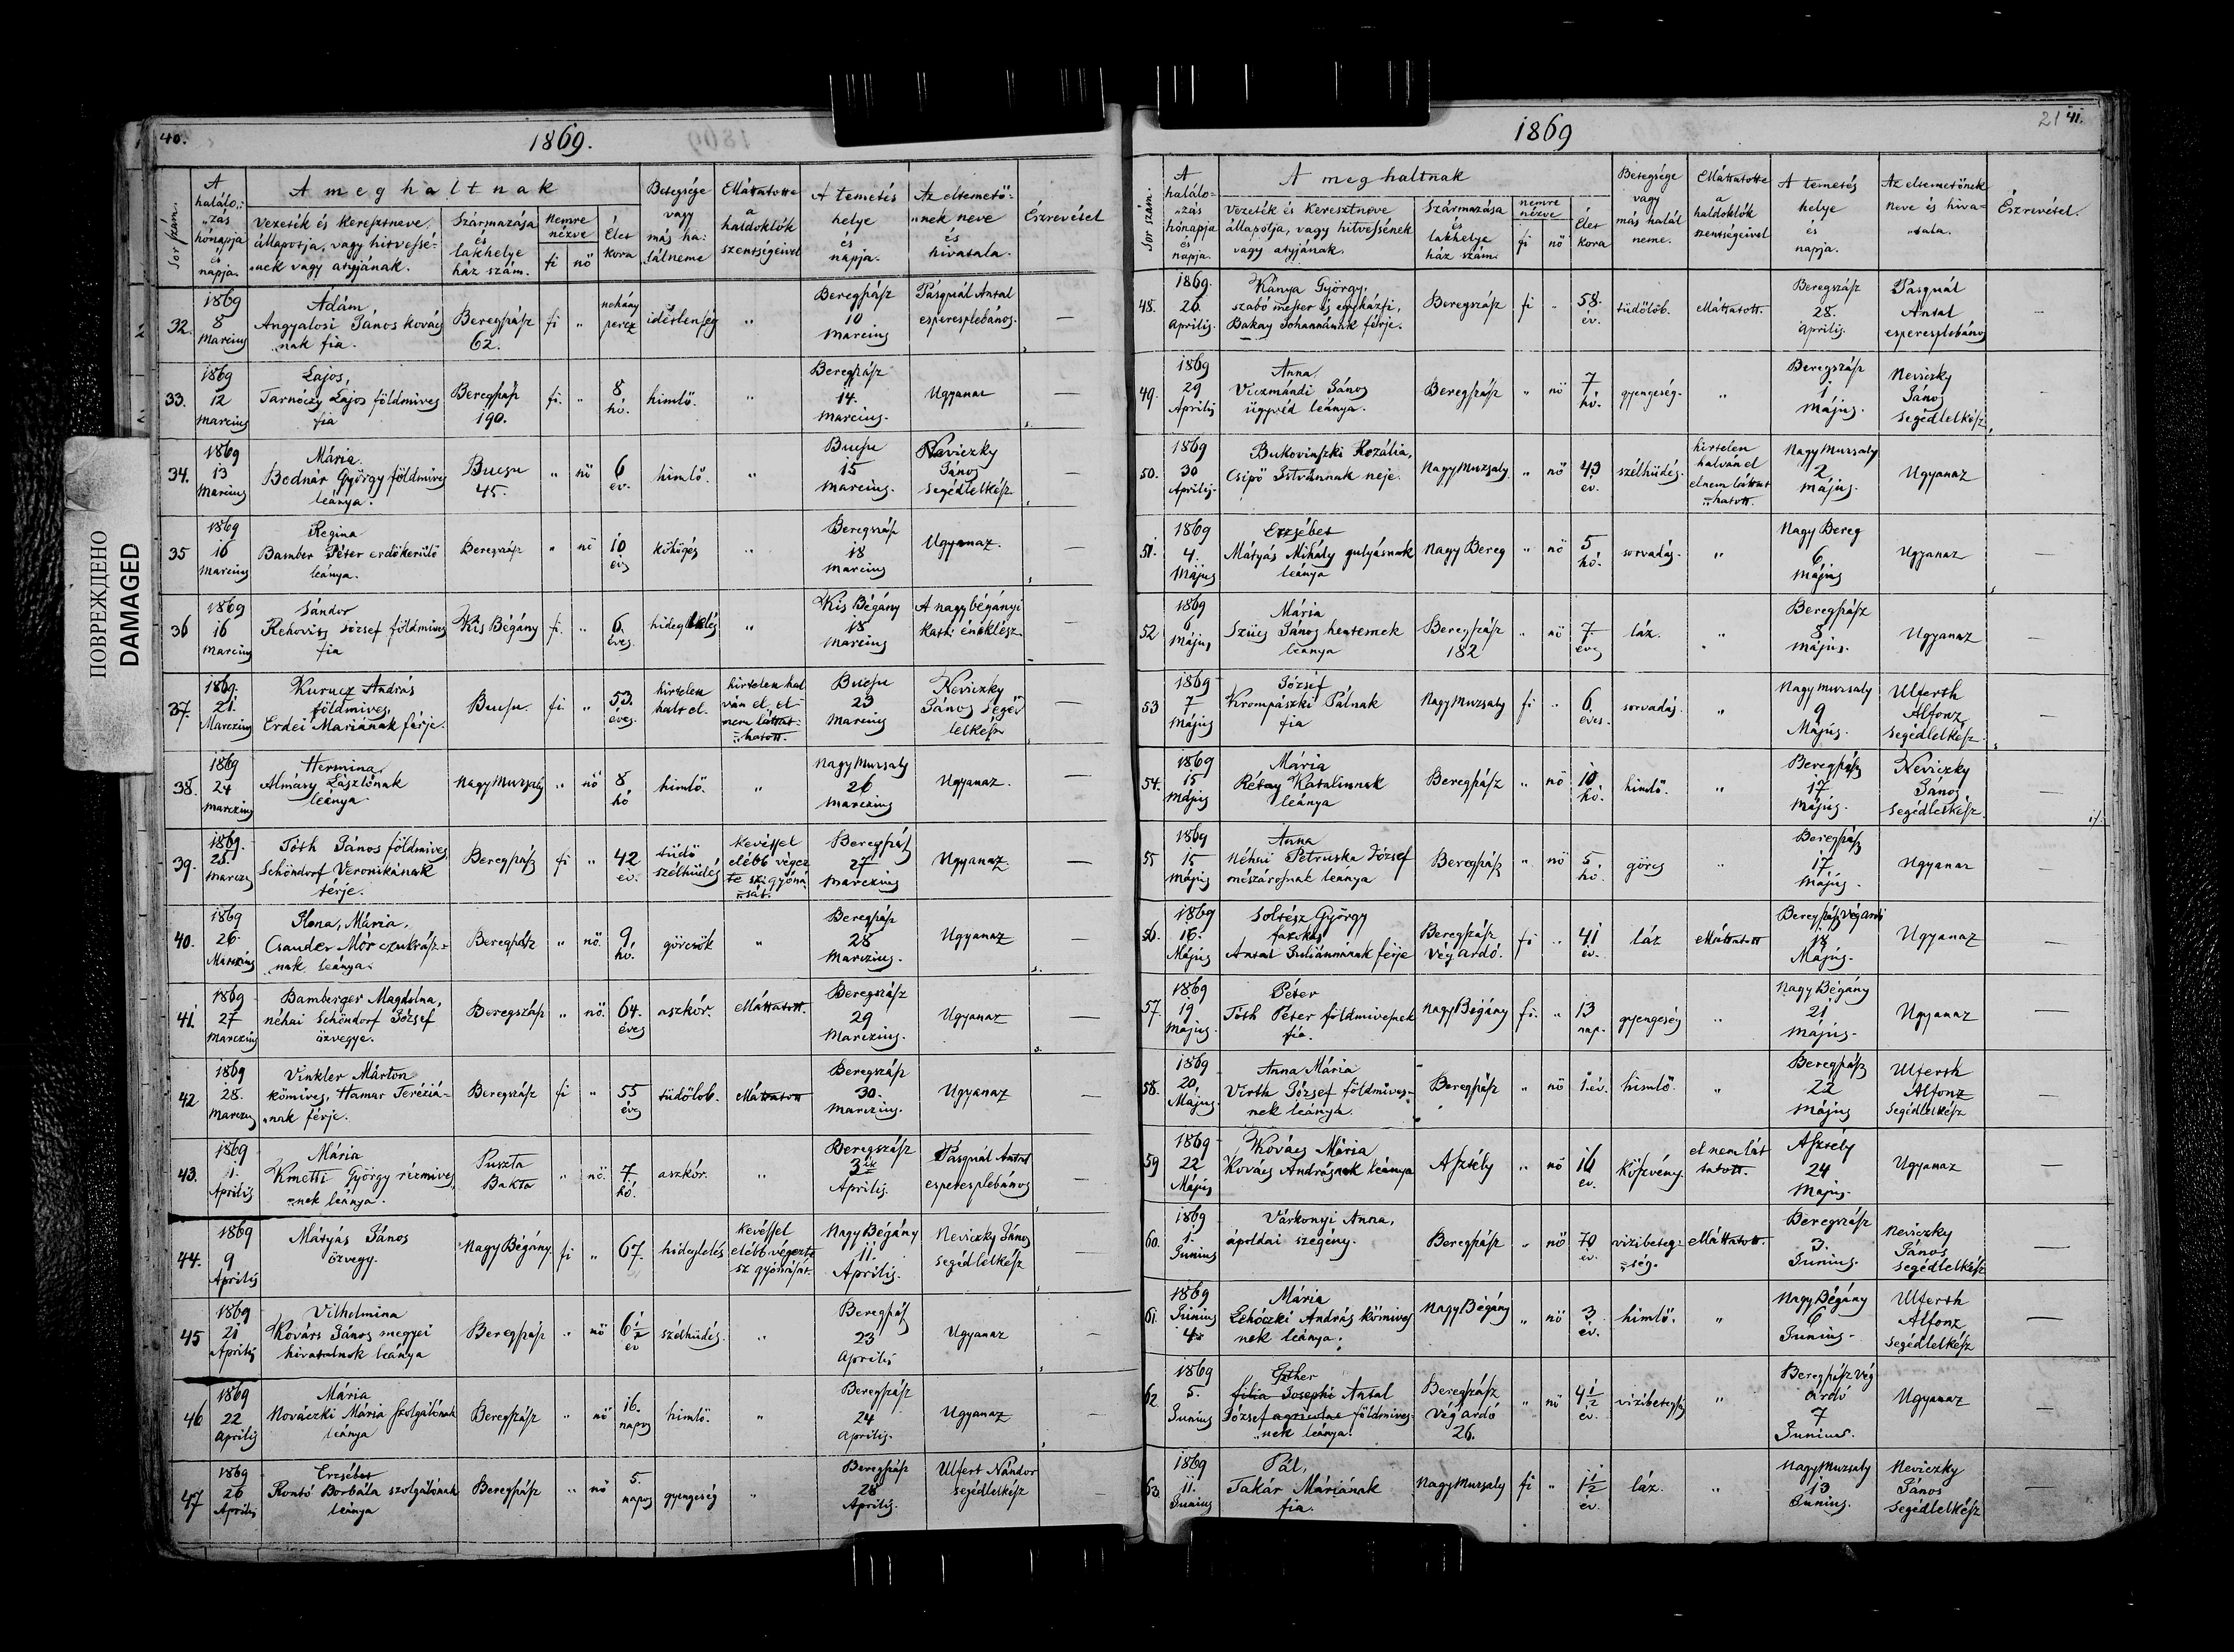 40.
1869.
Sor szám.
A halálo-
zás
hónapja
és
napja.
A meghaltnak
Vezeték és Keresztneve,
állapotja, vagy hitvessé-
nek vagy atyjának.
Származása
és
lakhelye
ház szám.
Nemre
nézve
fi nő
Élet
kora
Betegsége
vagy
más ha-
lálneme
Elláttatotte
a
haldoklók
szentségeivel
A temetés
helye
és
napja.
Az eltemető-
nek neve
és
hivatala.
Észrevétel
32. 1869 8 Marcius
Ádám
Angyalosi János kovács
nak fia.
Beregszász 62. fi " nehány percz idétlenség "
Beregszász 10 Marcius
Pásquál Antal
esperesplebános. —
33. 1869 12 Marcius
Lajos,
Tarnóczy Lajos földmives
fia
Beregszász 190. fi. " 8 hó. himlő. "
Beregszász 14. Marcius.
Ugyanaz —
34. 1869 13 Marcius
Mária.
Bodnár György földmives
leánya.
Bucsu 45. " nő 6 év. himlő. "
Bucsu 15 Marcius.
Neviczky
János
Segédlelkész —
35 1869 16 Marcius
Regina
Bamber Péter erdőkerülő
leánya.
Beregszász " nő 10 éves köhögés "
Beregszász 18 Marcius
Ugyanaz. —
36 1869 16 Marcius
Sándor
Rehovits József földmives
fia
Kis Bégány fi. " 6. éves. hideglelés "
Kis Bégány 18 Marcius
A nagybégányi
kath: éneklész —
37. 1869. 21. Marczius
Kurucz András
földmives,
Erdei Mariának férje.
Bucsu. fi " 53. éves.
hirtelen
halt el.
hirtelen hal
ván el, el
nem láttat
hatott.
Bucsu 23 Marcius
Neviczky
János Segéd
lelkész —
38. 1869 24 Marczius
Hermina
Almásy Lászlónak
leánya
Nagy Muzsaly " nő 8 hó himlő. "
Nagy Muzsaly 26 Marczius
Ugyanaz. —
39. 1869. 25. Marczius
Tóth János földmives
Schöndorf Veronikának
férje.
Beregszász fi " 42 év.
tüdő
szélhüdés
kevéssel
elébb végez
te sz. gyóná
sát.
Beregszász 27 Marczius
Ugyanaz. —
40. 1869 26. Marczius
Ilona, Mária,
Csauder Mór czukrász-
nak leánya.
Beregszász " nő. 9 hó. görcsök "
Beregszász 28 Marczius.
Ugyanaz —
41. 1869 27 Marczius
Bamberger Magdolna,
néhai Schöndorf József
özvegye.
Beregszász " nő. 64. éves aszkór. Elláttatott.
Beregszász 29 Marczius.
Ugyanaz —
42 1869 28. Marczius
Vinkler Márton
kőmives, Hamar Teréziá-
nak férje.
Beregszász fi " 55 év tüdőlob. Elláttatott
Beregszász 30. Marczius.
Ugyanaz —
43. 1869 1. Aprilis
Mária
Kmetti György rézmives
nek leánya.
Puszta Bakta " nő. 7. hó. aszkór. "
Beregszász 3 Aprilis.
Pásquál Antal
esperesplebános —
44. 1869 9 Aprilis
Mátyás János
özvegy.
Nagy Bégány fi " 67. hideglelés
kevéssel
elébb végezte
sz. gyónását.
Nagy Bégány 11. Aprilis.
Neviczky János
segédlelkész —
45 1869 21 Aprilis
Vilhelmina
Kovács János megyei
hivatalnok leánya
Beregszász " nő 6 1/2 év szélhüdés. "
Beregszász 23 Aprilis
Ugyanaz —
46 1869 22 Aprilis
Mária
Nováczki Mária szolgálónak
leánya
Beregszász " nő 16. napos himlő. "
Beregszász 24 Aprilis.
Ugyanaz —
47 1869 26 Aprilis
Erzsébet
Rontó Borbála szolgálónak
leánya
Beregszász " nő 5. napos gyengeség "
Beregszász 28 Aprilis.
Ulfert Nándor
segédlelkész —
ПОВРЕЖДЕНО
DAMAGED
21 41.
1869
Sor szám.
A
halálo-
zás
hónapja
és
napja.
A meghaltnak
Vezeték és Keresztneve
állapotja, vagy hitvessének
vagy atyjának.
Származása
és
lakhelye
ház szám.
nemre
nézve
fi nő
Élet
kora
Betegsége
vagy
más halál
neme.
Elláttatotte
a
haldoklók
szentségeivel
A temetés
helye
és
napja.
Az eltemetőnek
neve és hiva-
tala.
Észrevétel.
48. 1869. 26. Aprilis.
Kánya György.
szabó mester és egyházfi,
Bakay Johannának férje.
Beregszász fi " 58. év. tüdőlob. Elláttatott.
Beregszász 28. Aprilis.
Pásquál
Antal
esperesplébános —
49. 1869 29 Aprilis
Anna
Viczmándi János
ügyvéd leánya.
Beregszász " nő 7 hó. gyengeség. "
Beregszász 1 Május.
Neviczky
János
Segédlelkész —
50. 1869 30 Aprilis.
Bukovinszki Rozália,
Csipő Istvánnak neje.
Nagy Muzsaly. " nő 43 év. szélhüdés.
hirtelen
halván el
el nem láttat
hatott.
Nagy Muzsaly 2 Május.
Ugyanaz —
51. 1869 4. Május
Erzsébet
Mátyás Mihály gulyásnak
leánya
Nagy Bereg " nő 5 hó. sorvadás. "
Nagy Bereg 6 Május
Ugyanaz —
52 1869 6 Május
Mária
Szücs János hentesnek
leánya
Beregszász 182 " nő 7. éves láz. "
Beregszász 8 Május.
Ugyanaz —
53 1869 7 Május
József
Krompászki Pálnak
fia
Nagy Muzsaly fi " 6 éves. sorvadás. "
Nagy Muzsaly 9 Május.
Ulferth
Alfonz
Segédlelkész. —
54. 1869 15 Május
Mária
Rétay Katalinnak
leánya
Beregszász " nő 10 hó. himlő. "
Beregszász 17 Május.
Neviczky
János
Segédlelkész. —
55 1869 15 Május
Anna
Néhai Petruska József
mészárosnak leánya
Beregszász " nő 5. hó. görcs "
Beregszász 17 Május.
Ugyanaz —
56. 1869 16. Május
Soltész György
fazekas
Antal Juliánnának férje
Beregszász Végardó. fi " 41 év. láz Elláttatott
Beregszász Végardó 18 Május.
Ugyanaz —
57. 1869 19 Május.
Péter
Tóth Péter földmivesnek
fia.
Nagy Bégány fi. " 13 nap. gyengeség "
Nagy Bégány 21 Május.
Ugyanaz —
58. 1869 20. Május.
Anna Mária
Virth József földmives-
nek leánya.
Beregszász " nő 1. év. himlő. "
Beregszász 22 Május
Ulferth
Alfonz
Segédlelkész —
59 1869 22 Május
Kovács Mária
Kovács Andrásnak leánya
Asztély " nő 16 év. Köszvény.
el nem lát
tatott.
Asztély 24 Május.
Ugyanaz —
60. 1869 1. Junius
Várkonyi Anna,
ápoldai szegény.
Beregszász " nő 70 év.
vizibeteg-
ség.
Elláttatott.
Beregszász 3. Junius.
Neviczky
János
segédlelkész —
61. 1869 Junius 4
Mária
Lehóczki András kőmives
nek leánya.
Nagy Bégány " nő 3 év. himlő. "
Nagy Bégány 6 Junius.
Ulferth
Alfonz
Segédlelkész —
62. 1869 5. Junius
Eszther
filia Josephi Antal
József agricolae földmives-
nek leánya.
Beregszász Végardó 26. " nő 4 1/2 év. vizibetegség "
Beregszász Vég
ardó
7
Junius.
Ugyanaz —
63. 1869 11. Junius
Pál,
Takár Máriának
fia.
Nagy Muzsaly fi " 1 1/2 év. láz. "
Nagy Muzsaly 13 Junius.
Neviczky
János
Segédlelkész —